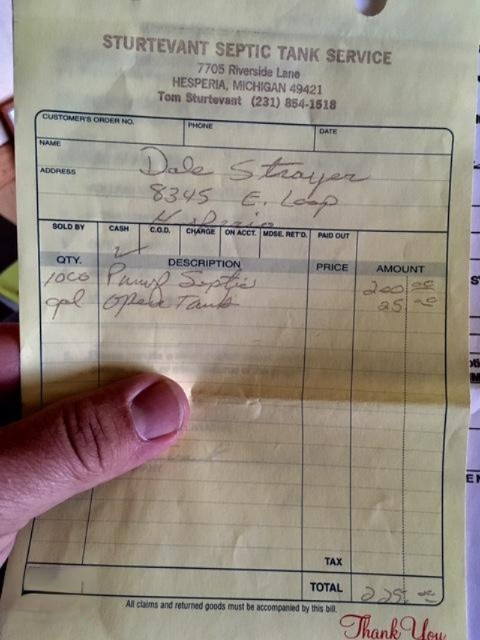 STURTEVANT SEPTIC TANK SERVICE
7705 Riverside Lane
HESPERIA, MICHIGAN 49421
Tom Sturtevant (231) 854-1518
CUSTOMER'S ORDER NO. PHONE DATE
NAME
Dale Strayer
ADDRESS
8345 E. Loop
Hesperia
SOLD BY CASH C.O.D. CHARGE ON ACCT. MDSE. RET'D. PAID OUT
✓
QTY. DESCRIPTION PRICE AMOUNT
1000 Pump Septic 200 00
gal open Tank 25 00
TAX
TOTAL 225 00
All claims and returned goods must be accompanied by this bill.
Thank You